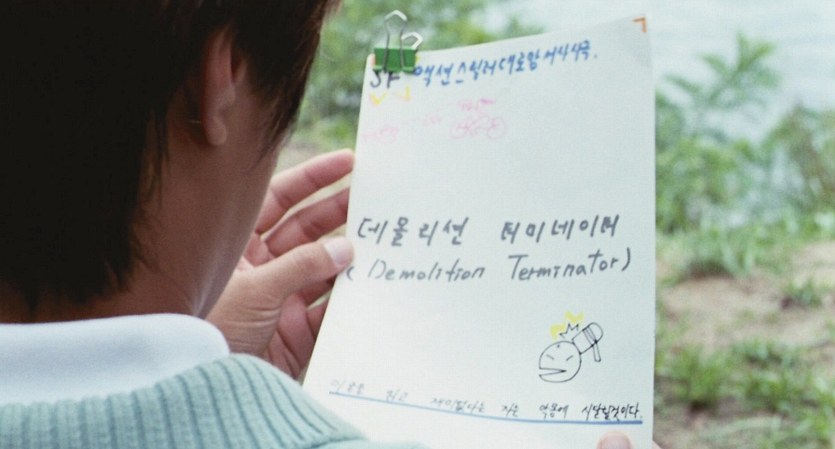 SF 액션스릴러대로망서사시극.
데몰리션 터미네이터
(Demolition Terminator)
이글을 읽고 재미없다는 자는 악몽에 시달릴것이다.